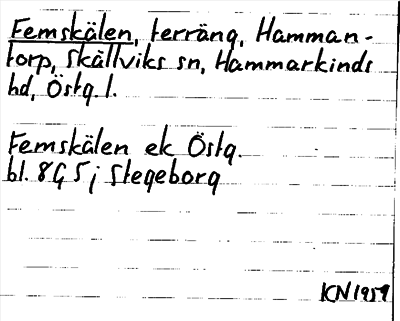 Femskälen, terräng, Hamman-
torp, Skällviks sn, Hammarkinds
hd, Östg. l.
Femskälen ek Östg.
bl. 8G 5j Stegeborg
KN 1959